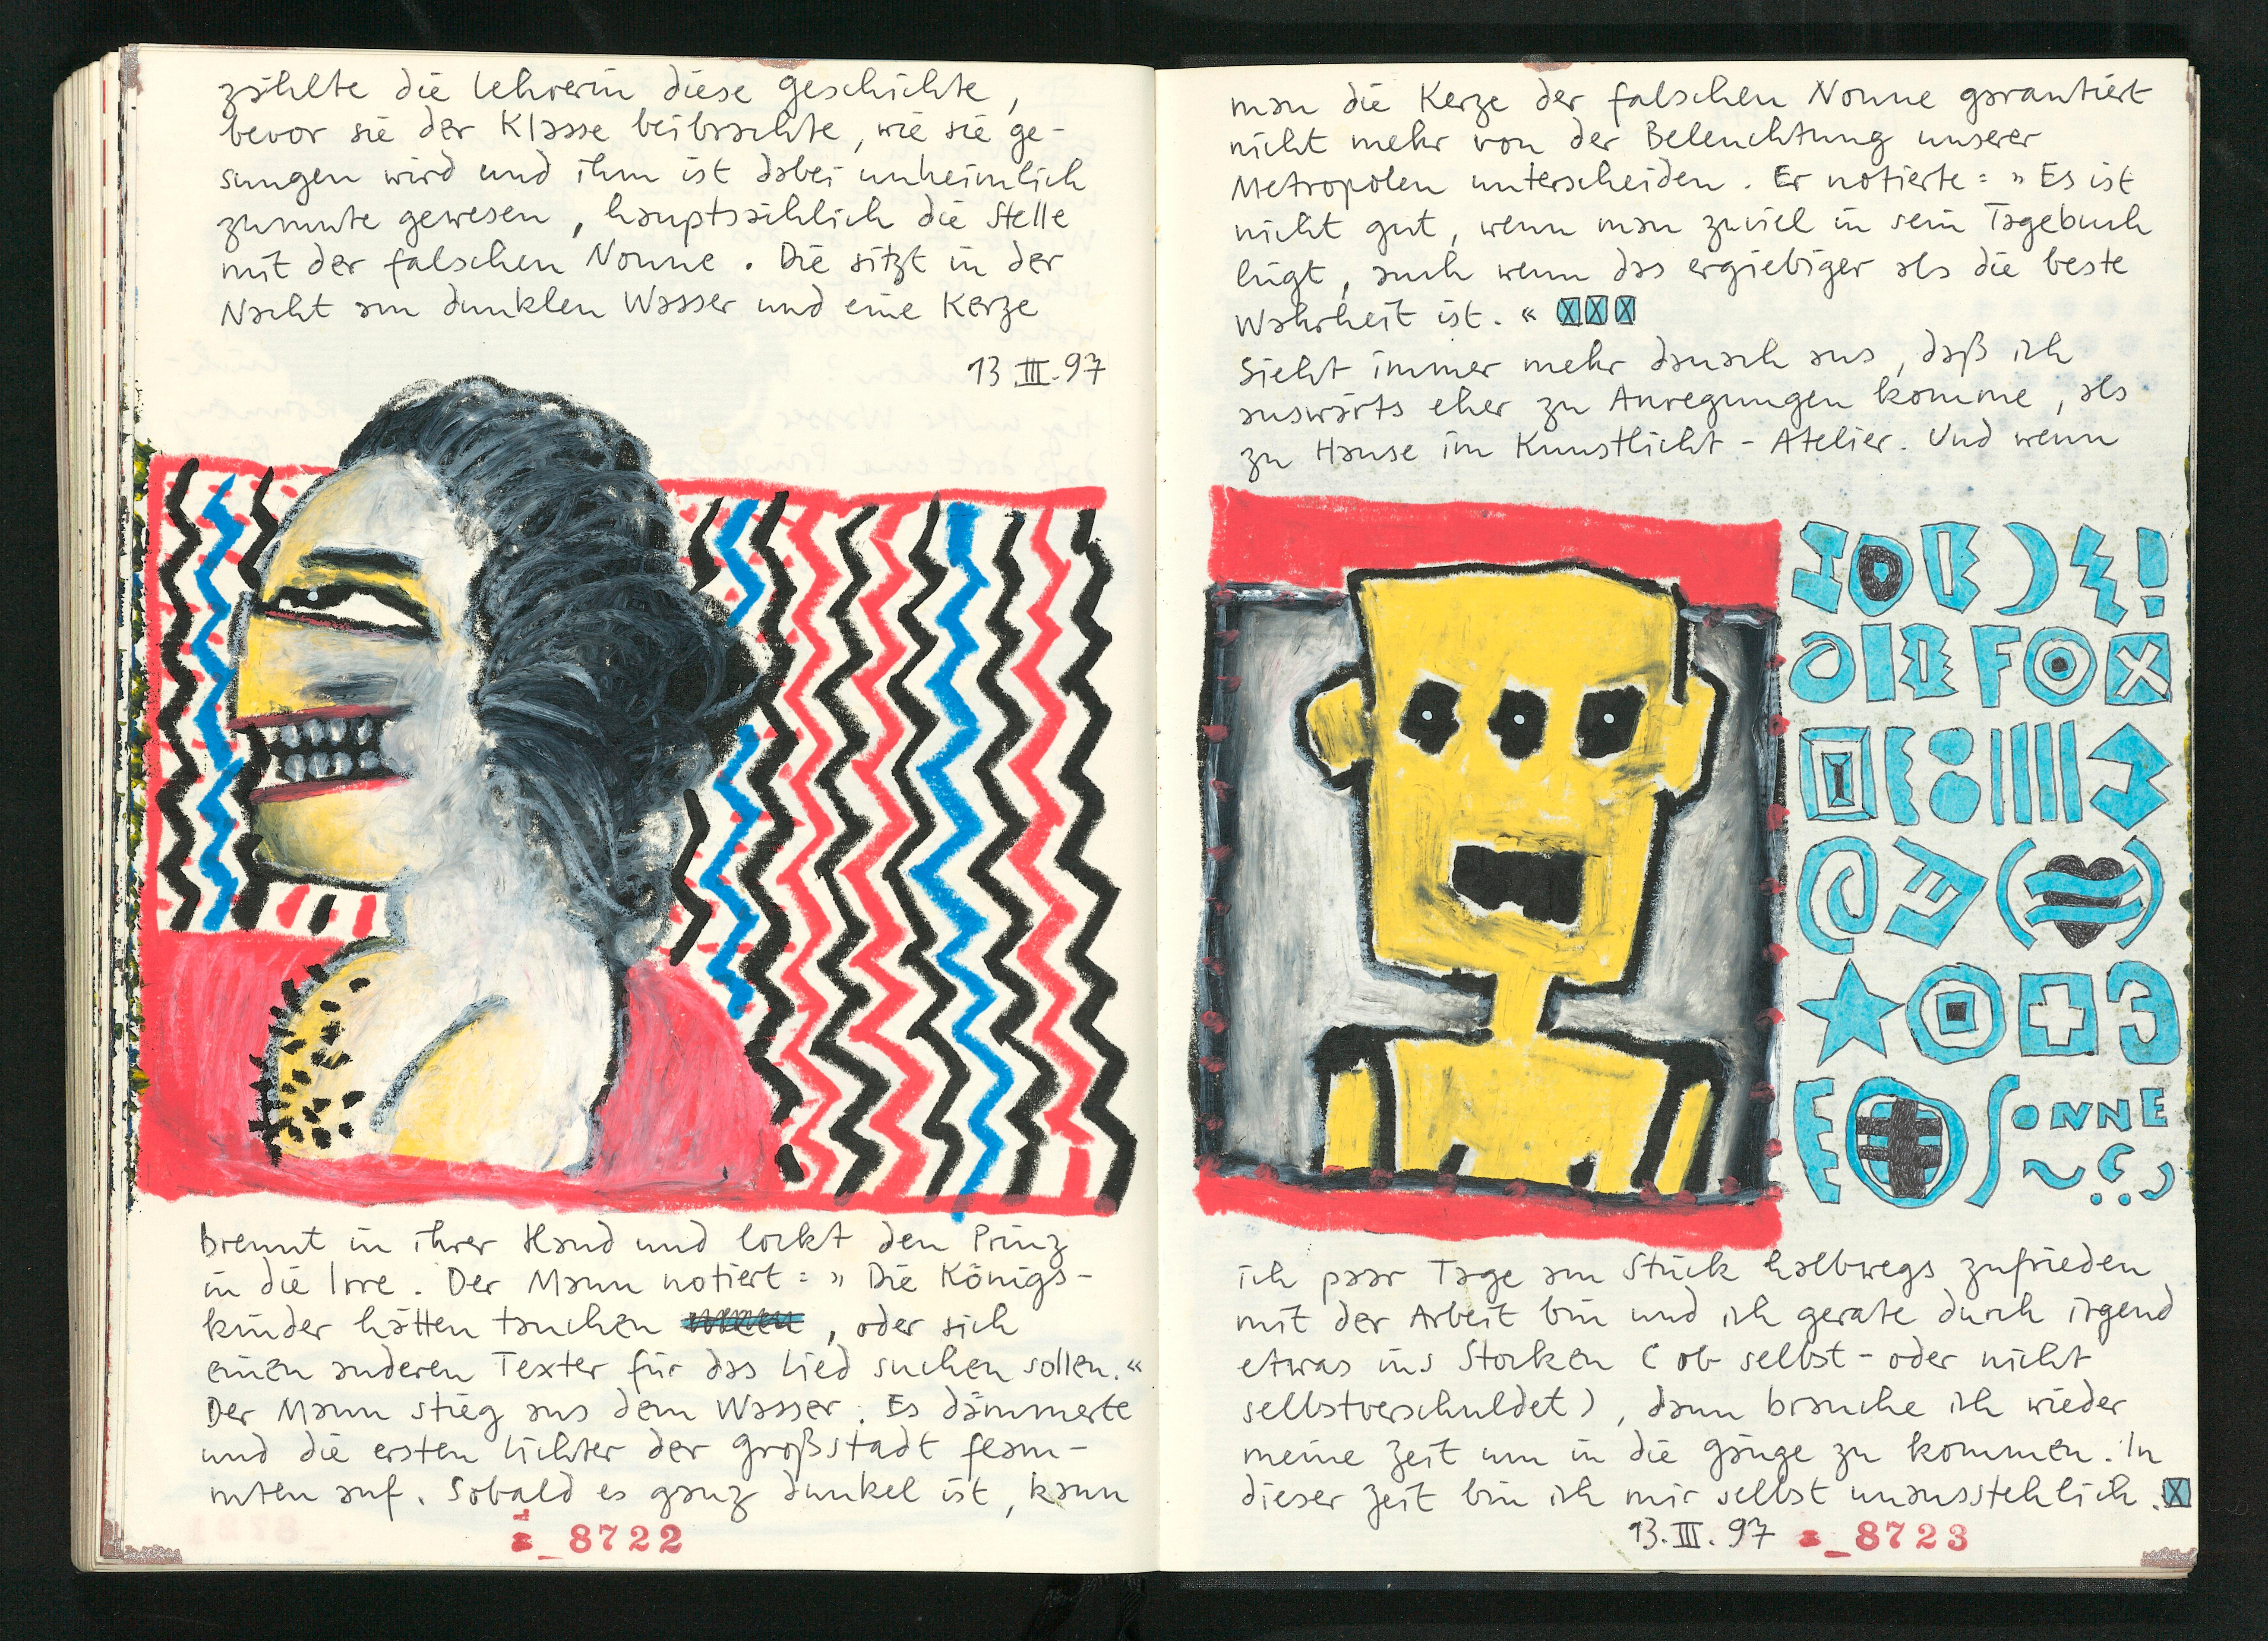 zählte die Lehrerin diese Geschichte,
bevor sie der Klasse beibrachte, wie sie ge-
sungen wird und ihm ist dabei unheimlich
zumute gewesen, hauptsächlich die Stelle
mit der falschen Nonne. Die sitzt in der
Nacht am dunklen Wasser und eine Kerze
13 III.97
brennt in ihrer Hand und lockt den Prinz
in die Irre. Der Mann notiert: »Die Königs-
kinder hätten tauchen , oder sich
einen anderen Texter für das Lied suchen sollen.«
Der Mann stieg aus dem Wasser. Es dämmerte
und die ersten Lichter der Großstadt flam-
mten auf. Sobald es ganz dunkel ist, kann
8722
man die Kerze der falschen Nonne garantiert
nicht mehr von der Beleuchtung unserer
Metropolen unterscheiden. Er notierte: »Es ist
nicht gut, wenn man zuviel in sein Tagebuch
lügt, auch wenn das ergiebiger als die beste
Wahrheit ist.« XXX
Sieht immer mehr danach aus, daß ich
auswärts eher zu Anregungen komme, als
zu Hause im Kunstlicht-Atelier. Und wenn
SONNE
ich paar Tage am Stück halbwegs zufrieden
mit der Arbeit bin und ich gerate durch irgend
etwas ins Stocken (ob selbst- oder nicht
selbstverschuldet), dann brauche ich wieder
meine Zeit um in die Gänge zu kommen. In
dieser Zeit bin ich mir selbst unausstehlich. X
13.III.97 8723